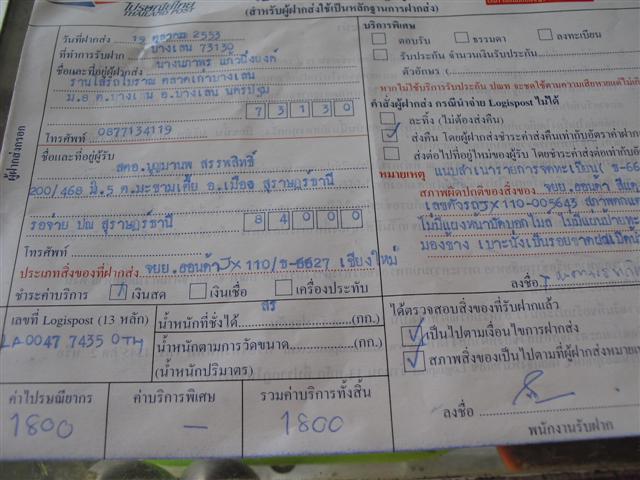 ไปรษณีย์ไทย
THAILAND POST
(สำหรับผู้ฝากส่งใช้เป็นหลักฐานการฝากส่ง)
ผู้ฝากส่งกรอก
วันที่ฝากส่ง 19 ตุลาคม 2553
ที่ทำการรับฝาก บางเลน 73130
ชื่อและที่อยู่ผู้ฝากส่ง บางนภาพร แก้วบึงยงค์
ร้านไส้รถโบราณ ตลาดเก่าบางเลน
ม.8 ต.บางเลน อ.บางเลน นครปฐม
73130
โทรศัพท์ 0877134119
ชื่อและที่อยู่ผู้รับ
สคอ.บุญมานพ สรรพสิทธิ์
200/468 ม.5 ต.มะขามเตี้ย อ.เมือง สุราษฎร์ธานี
รอจ่าย ปณ สุราษฎร์ธานี 84000
โทรศัพท์
ประเภทสิ่งของที่ฝากส่ง จยย.ฮอนด้า JX 110/ข-6627 เชียงใหม่
ชำระค่าบริการ เงินสด เงินเชื่อ เครื่องประทับ
เลขที่ Logispost (13 หลัก)
LA0047 7435 0TH
น้ำหนักที่ชั่งได้ (กก.)
น้ำหนักตามการวัดขนาด (กก.)
(น้ำหนักปริมาตร)
ค่าไปรษณียากร ค่าบริการพิเศษ รวมค่าบริการทั้งสิ้น
1800 – 1800
บริการพิเศษ
ตอบรับ ธรรมดา ลงทะเบียน
รับประกัน จำนวนเงินรับประกัน
ตัวอักษร (
หากไม่ใช้บริการรับประกัน ปณท จะชดใช้ตามความเสียหายแต่ไม่เกิ
คำสั่งผู้ฝากส่ง กรณีนำจ่าย Logispost ไม่ได้
ละทิ้ง (ไม่ต้องส่งคืน)
ส่งคืน โดยผู้ฝากส่งชำระค่าส่งคืนเท่ากับอัตราค่าฝากส่ง
ส่งต่อไปที่อยู่ใหม่ของผู้รับ โดยชำระค่าส่งต่อเท่ากับอั
หมายเหตุ แนบสำเนารายการจดทะเบียน( ข-66
สภาพผิดปกติของสิ่งของ จยย.ฮอนด้า สีแด
เลขตัวรถJX 110-005643 สภาพตกแ
ไม่มีแผงหน้าปัดบอกไมล์
มองข้าง เบาะนั่งเป็นรอยขาด
ลงชื่อ
ได้ตรวจสอบสิ่งของที่รับฝากแล้ว
เป็นไปตามเงื่อนไขการฝากส่ง
สภาพสิ่งของเป็นไปตามที่ผู้ฝากส่งหมายเห
ลงชื่อ
พนักงานรับฝาก